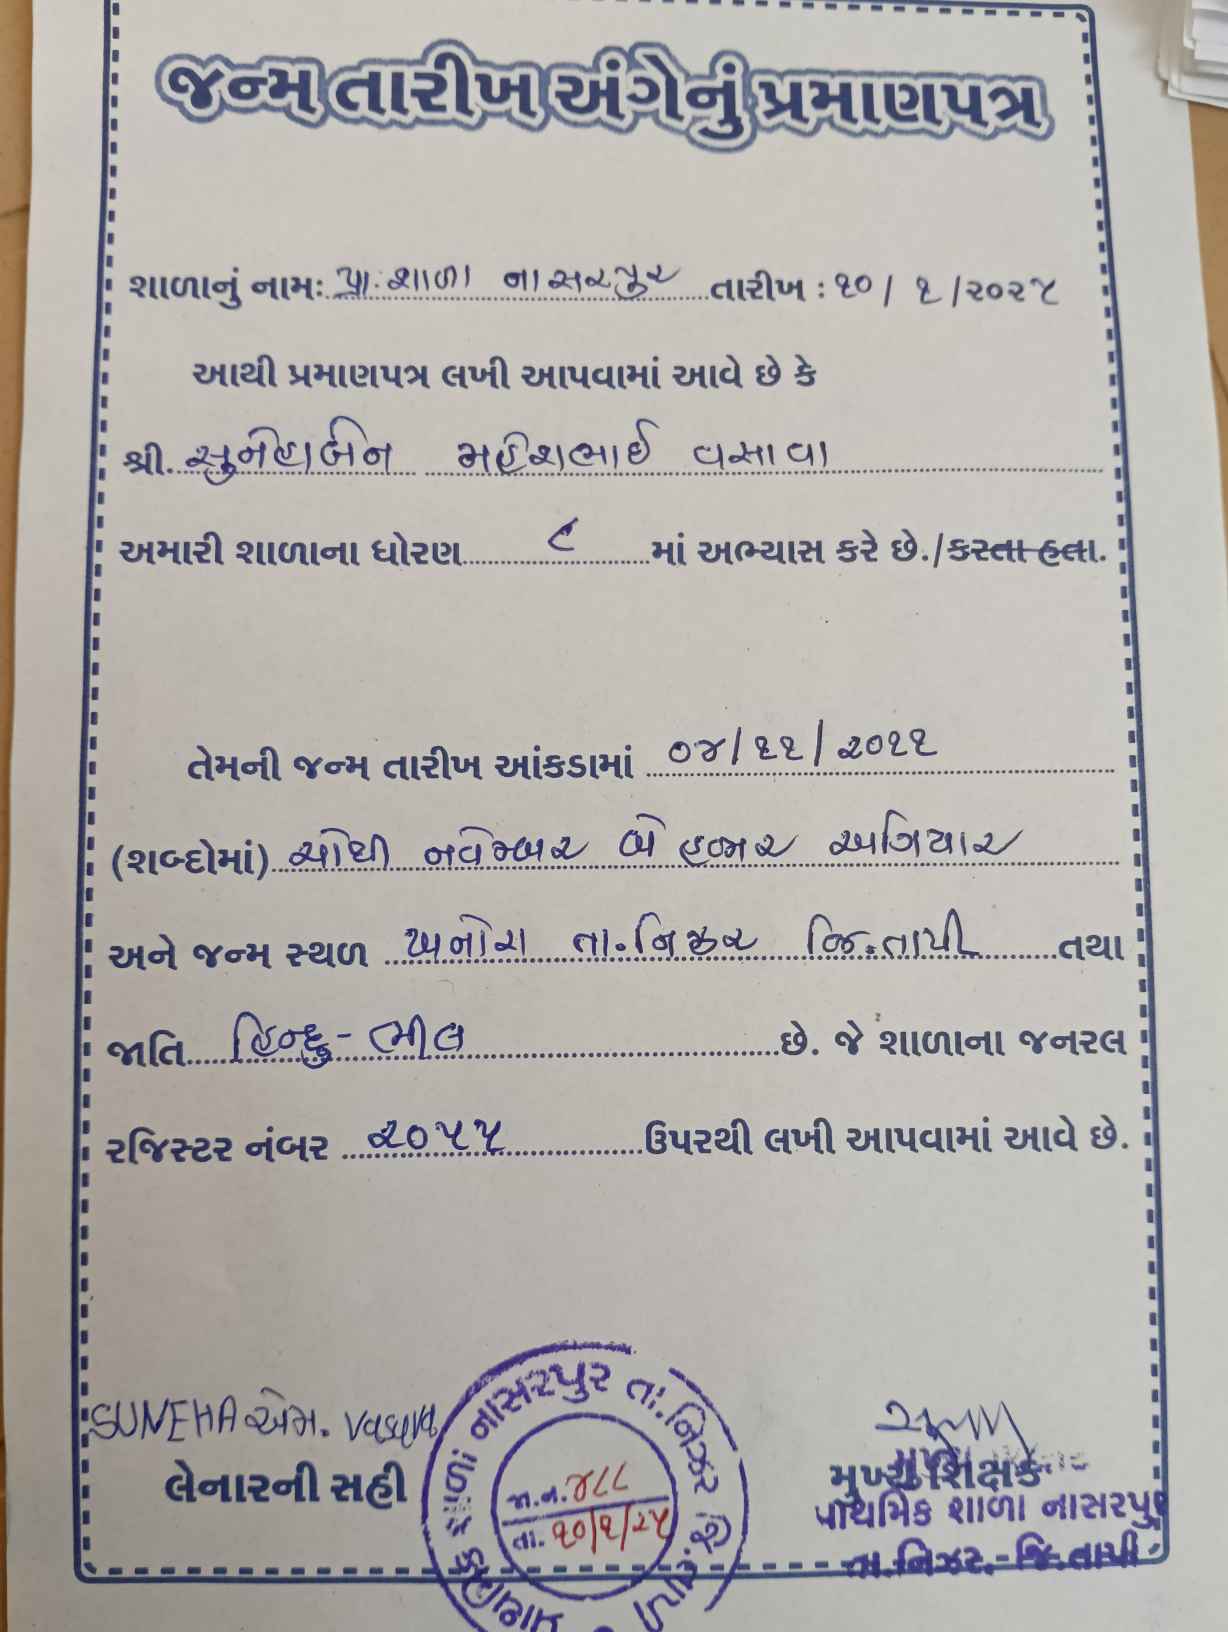 જન્મ તારીખ અંગેનું પ્રમાણપત્ર
શાળાનું નામ: પ્રા. શાળા નાસરપુર તારીખ : ૧૦/ ૧/૨૦૨૫
આથી પ્રમાણપત્ર લખી આપવામાં આવે છે કે
શ્રી. સુનેહાબેન મહેશભાઈ વસાવા
અમારી શાળાના ધોરણ ૮ માં અભ્યાસ કરે છે./કરતા હતા.
તેમની જન્મ તારીખ આંકડામાં ૦૪/૧૧/૨૦૧૧
(શબ્દોમાં) ચોથી નવેમ્બર બે હજાર અગિયાર
અને જન્મ સ્થળ ખનોરા તા.નિઝર જિ.તાપી તથા
જાતિ હિન્દુ-ભીલ છે. જે શાળાના જનરલ
રજિસ્ટર નંબર ૨૦૫૫ ઉપરથી લખી આપવામાં આવે છે.
SUNEHA એમ. Vasava
લેનારની સહી
પ્રાથમિક શાળા નાસરપુર તા.નિઝર જિ.તાપી
જા.ન.૪૮૮
તા. ૧૦/૧/૨૫
મુખ્ય શિક્ષક
પ્રાથમિક શાળા નાસરપુર
તા.નિઝર,-જિ.તાપી